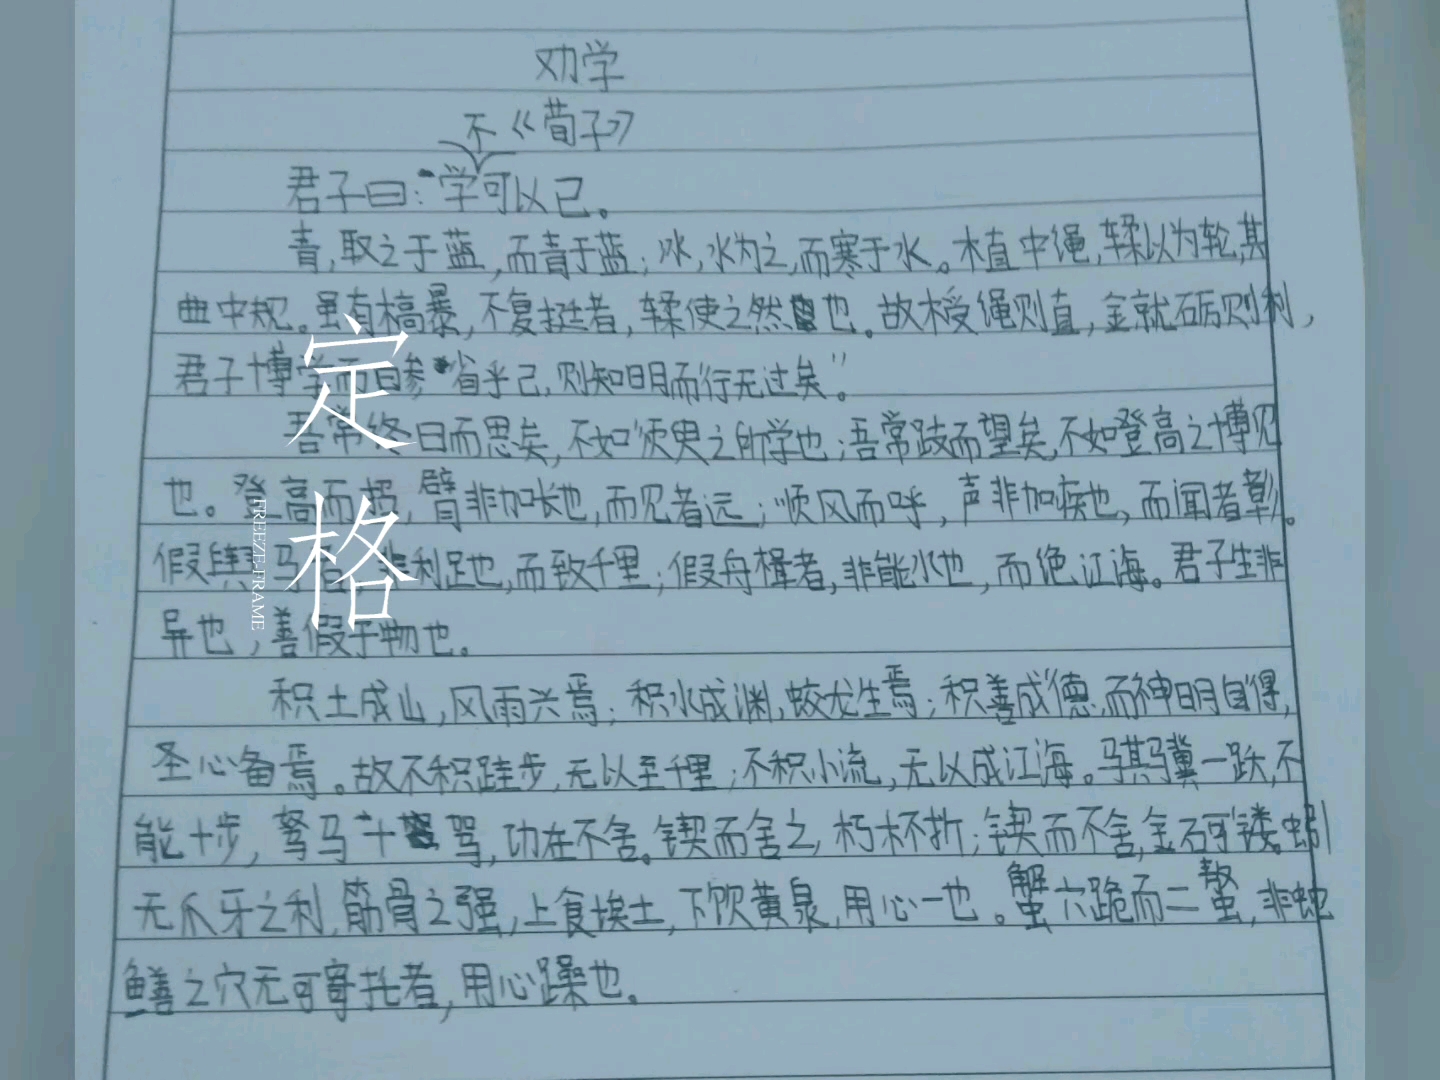 劝学
《荀子》
君子曰：学不可以已。
青，取之于蓝，而青于蓝；冰，水为之，而寒于水。木直中绳，輮以为轮，其
曲中规。虽有槁暴，不复挺者，輮使之然也。故木受绳则直，金就砺则利，
君子博学而日参省乎己，则知明而行无过矣"。
吾常终日而思矣，不如须臾之所学也；吾常跂而望矣，不如登高之博见
也。登高而招，臂非加长也，而见者远；顺风而呼，声非加疾也，而闻者彰。
假舆马者，非利足也，而致千里；假舟楫者，非能水也，而绝江海。君子生非
异也，善假于物也。
积土成山，风雨兴焉；积水成渊，蛟龙生焉；积善成德，而神明自得，
圣心备焉。故不积跬步，无以至千里；不积小流，无以成江海。骐骥一跃，不
能十步，驽马十驾，功在不舍。锲而舍之，朽木不折；锲而不舍，金石可镂。蚓
无爪牙之利，筋骨之强，上食埃土，下饮黄泉，用心一也。蟹六跪而二螯，非蛇
鳝之穴无可寄托者，用心躁也。
定格
FREEZE-FRAME